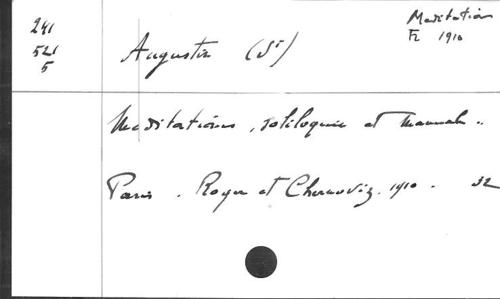 241
521
5
Meditation
Fr 1910
Augustin (St)
Meditations, soliloquies et Manuels.
Paris. Roger et Chernoviz. 1910. 32